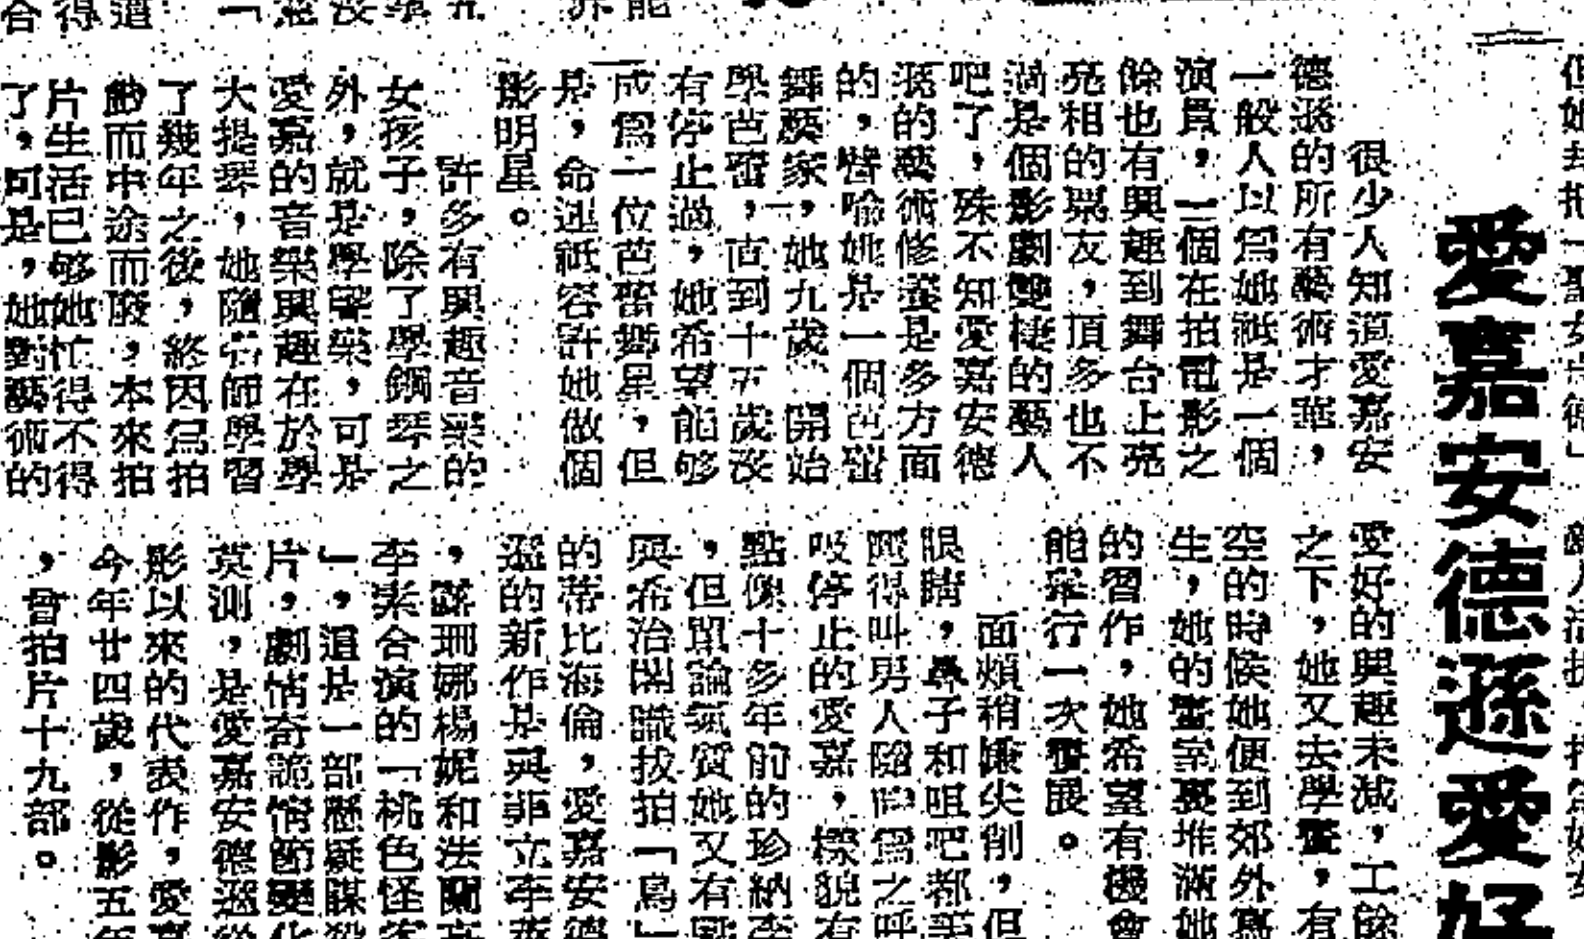 愛嘉安德遜愛好
很少人知道愛嘉安
德遜的所有藝術才華，
一般人以爲她祇是一個
演員，一個在拍電影之
餘也有興趣到舞台上亮
亮相的票友，頂多也不
過是個影劇雙棲的藝人
吧了，殊不知愛嘉安德
遜的藝術修養是多方面
的，譬喻她是一個芭蕾
舞藝家，她九歲開始
學芭蕾，直到十五歲沒
有停止過，她希望能够
成爲一位芭蕾舞星，但
是，命運祇容許她做個
影明星。
許多有興趣音樂的
女孩子，除了學鋼琴之
外，就是學聲樂，可是
愛嘉的音樂興趣在於學
大提琴，她隨名師學習
了幾年之後，終因爲拍
戲而中途而廢，本來拍
片生活已够她忙得不得
了，可是，她對藝術的
愛好的興趣未減，工餘
之下，她又去學畫，有
空的時候她便到郊外寫
生，她的畫室裏堆滿她
的習作，她希望有機會
能舉行一次畫展。
面頰稍嫌尖削，但
眼睛，鼻子和咀吧都美
麗得叫男人隨時爲之呼
吸停止的愛嘉，樣貌有
點像十多年前的珍納李
，但單論氣質她又有
與希治閣識拔拍「鳥」
的蒂比海倫，愛嘉安德
遜的新作是與菲立李萊
，蘇珊娜楊妮和法蘭
李素合演的「桃色怪客
」，這是一部懸疑謀殺
片，劇情奇詭情節變化
莫測，是愛嘉安德遜從
影以來的代表作，愛嘉
今年廿四歲，從影五年
，曾拍片十九部。